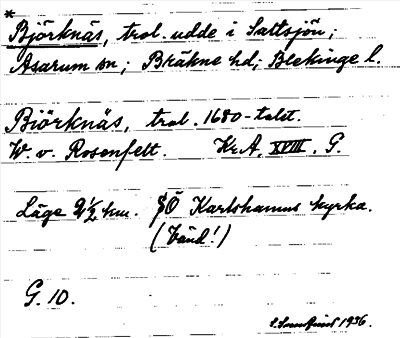 *
Björknäs, trol. udde i Saltsjön;
Asarum sn; Bräkne hd; Blekinge l.
Biörknäs, trol. 1680-talet.
W. v. Rosenfelt. Kr.A. XVIII. G.
Läge 2 1/2 km. SÖ Karlshamns kyrka.
(Vänd!)
G. 10.
1936.